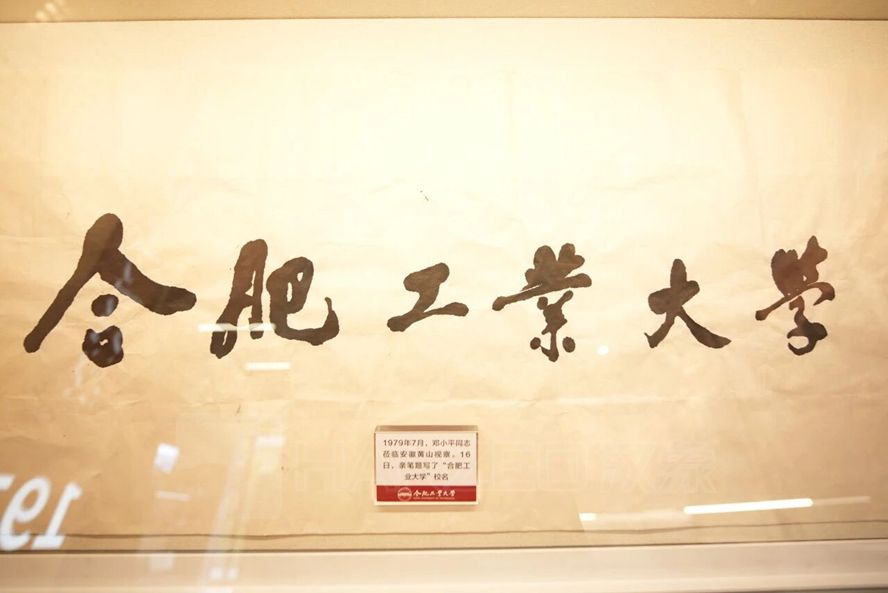 合肥工業大學
1979年7月，邓小平同志
莅临安徽黄山视察。16
日，亲笔题写了“合肥工
业大学”校名
合肥工业大学